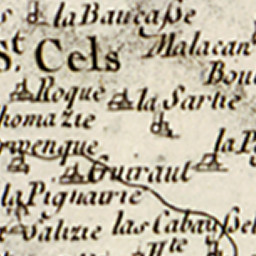 la Baucasse
St. Cels
Malacan
Bou
Roque
la Sartie
homazie
rwenque
la P
Guiraut
la Piquairie
Valizie
las Cabausse